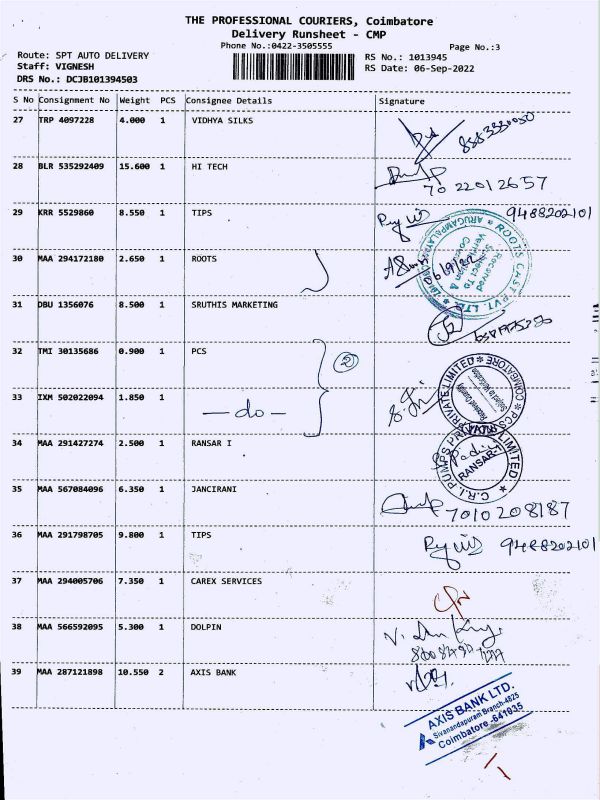 THE PROFESSIONAL COURIERS, Coimbatore
Delivery Runsheet - CMP
Phone No.:0422-3505555
Page No.:3
Route: SPT AUTO DELIVERY
RS No.: 1013945
Staff: VIGNESH
RS Date: 06-Sep-2022
DRS No.: DCJB101394503
S No Consignment No Weight PCS Consignee Details Signature
27 TRP 4097228 4.000 1 VIDHYA SILKS
28 BLR 535292409 15.600 1 HI TECH
70 2201 2657
29 KRR 5529860 8.550 1 TIPS
9488202101
30 MAA 294172180 2.650 1 ROOTS
ROOTS CAST PVT. LTD.
Received
Subject To
Verification &
31 DBU 1356076 8.500 1 SRUTHIS MARKETING
32 TMI 30135686 0.900 1 PCS
2
33 IXM 502022094 1.850 1
-do-
PRIVATE LIMITED * COIMBATORE
34 MAA 291427274 2.500 1 RANSAR I
C.R.I. PUMPS PRIVATE LIMITED
RANSAR-1
35 MAA 567084096 6.350 1 JANCIRANI
7010208187
36 MAA 291798705 9.800 1 TIPS
9488202101
37 MAA 294005706 7.350 1 CAREX SERVICES
38 MAA 566592095 5.300 1 DOLPIN
39 MAA 287121898 10.550 2 AXIS BANK
AXIS BANK LTD.
Sivanandapuram Branch-4525
Coimbatore -641035